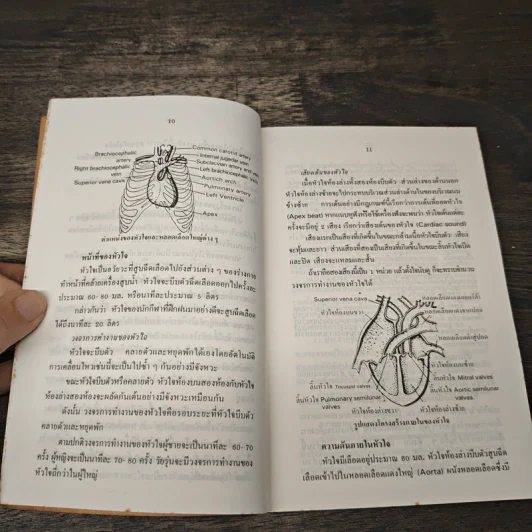 10
Brachiocephalic artery
Right brachiocephalic vein
Superior vena cava
Common carotid artery
Internal jugular vein
Subclavian artery and vein
Left brachiocephalic vein
Aortich arch
Pulmonary artery
Left Ventricle
Apex
ตำแหน่งของหัวใจและหลอดเลือดใหญ่ต่าง ๆ
หน้าที่ของหัวใจ
หัวใจเป็นอวัยวะที่สูบฉีดเลือดไปยังส่วนต่าง ๆ ของร่างกาย
ทำหน้าที่คล้ายเครื่องสูบน้ำ หัวใจจะบีบตัวฉีดเลือดออกไปครั้งละ
ประมาณ 60-90 มล. หรือนาทีละประมาณ 5 ลิตร
กล่าวกันว่า หัวใจของนักกีฬาที่ฝึกฝนมาอย่างดีจะสูบฉีดเลือด
ได้ถึงนาทีละ 20 ลิตร
วงจรการทำงานของหัวใจ
หัวใจจะบีบตัว คลายตัวและหยุดพักได้เองโดยอัตโนมัติ
การเคลื่อนไหวเช่นนี้จะเป็นไปซ้ำ ๆ กันอย่างมีจังหวะ
ขณะหัวใจบีบตัวหรือคลายตัว หัวใจห้องบนสองห้องกับหัวใจ
ห้องล่างสองห้องจะผลัดกันเต้นอย่างมีจังหวะเหมือนกัน
ดังนั้น วงจรการทำงานของหัวใจคือรอบระยะที่หัวใจบีบตัว
คลายตัวและหยุดพัก
ตามปกติวงจรการทำงานของหัวใจผู้ชายจะเป็นนาทีละ 60-70
ครั้ง ผู้หญิงจะเป็นนาทีละ 70-80 ครั้ง วัยรุ่นจะมีวงจรการทำงานของ
หัวใจถี่กว่าในผู้ใหญ่
11
เสียงเต้นของหัวใจ
เมื่อหัวใจห้องล่างทั้งสองห้องบีบตัว ส่วนล่างของด้านนอก
หัวใจห้องล่างซ้ายจะไปกระทบบริเวณส่วนล่างด้านในของบริเวณนม
ข้างซ้าย การเต้นอย่างมีกฎเกณฑ์นี้เรียกว่าการเต้นที่ยอดหัวใจ
(Apex beat) หากแนบหูฟังหรือใช้เครื่องฟังจะพบว่า หัวใจเต้นแต่ละ
ครั้งจะมีอยู่ 2 เสียง เรียกว่าเสียงเต้นของหัวใจ (Cardiac sound)
เสียงแรกเป็นเสียงที่เกิดขึ้นในขณะกล้ามเนื้อหัวใจบีบตัว เสียง
จะทุ้มและยาว ส่วนเสียงที่สองเป็นเสียงที่เกิดขึ้นในขณะลิ้นหัวใจเปิด
และปิด เสียงจะแหลมและสั้น
ถ้าเราถือสองเสียงนี้เป็น 1 หน่วย แล้วตั้งใจนับดู ก็จะทราบจำนวน
วงจรการทำงานของหัวใจได้
Superior vena cava
หัวใจห้องบนขวา
ลิ้นหัวใจ Tricuspid valves
ลิ้นหัวใจ Pulmonary semilunar valves
หัวใจห้องล่างขวา
หัวใจห้องบนซ้าย
ลิ้นหัวใจ Mitral valves
ลิ้นหัวใจ Aortic semilunar valves
หัวใจห้องล่างซ้าย
รูปแสดงโครงสร้างภายในของหัวใจ
ความดันภายในหัวใจ
หัวใจมีเลือดอยู่ประมาณ 60 มล. หัวใจห้องล่างบีบตัวสูบฉีด
เลือดเข้าไปในหลอดเลือดแดงใหญ่ (Aorta) ผนังหลอดเลือดซึ่งมี